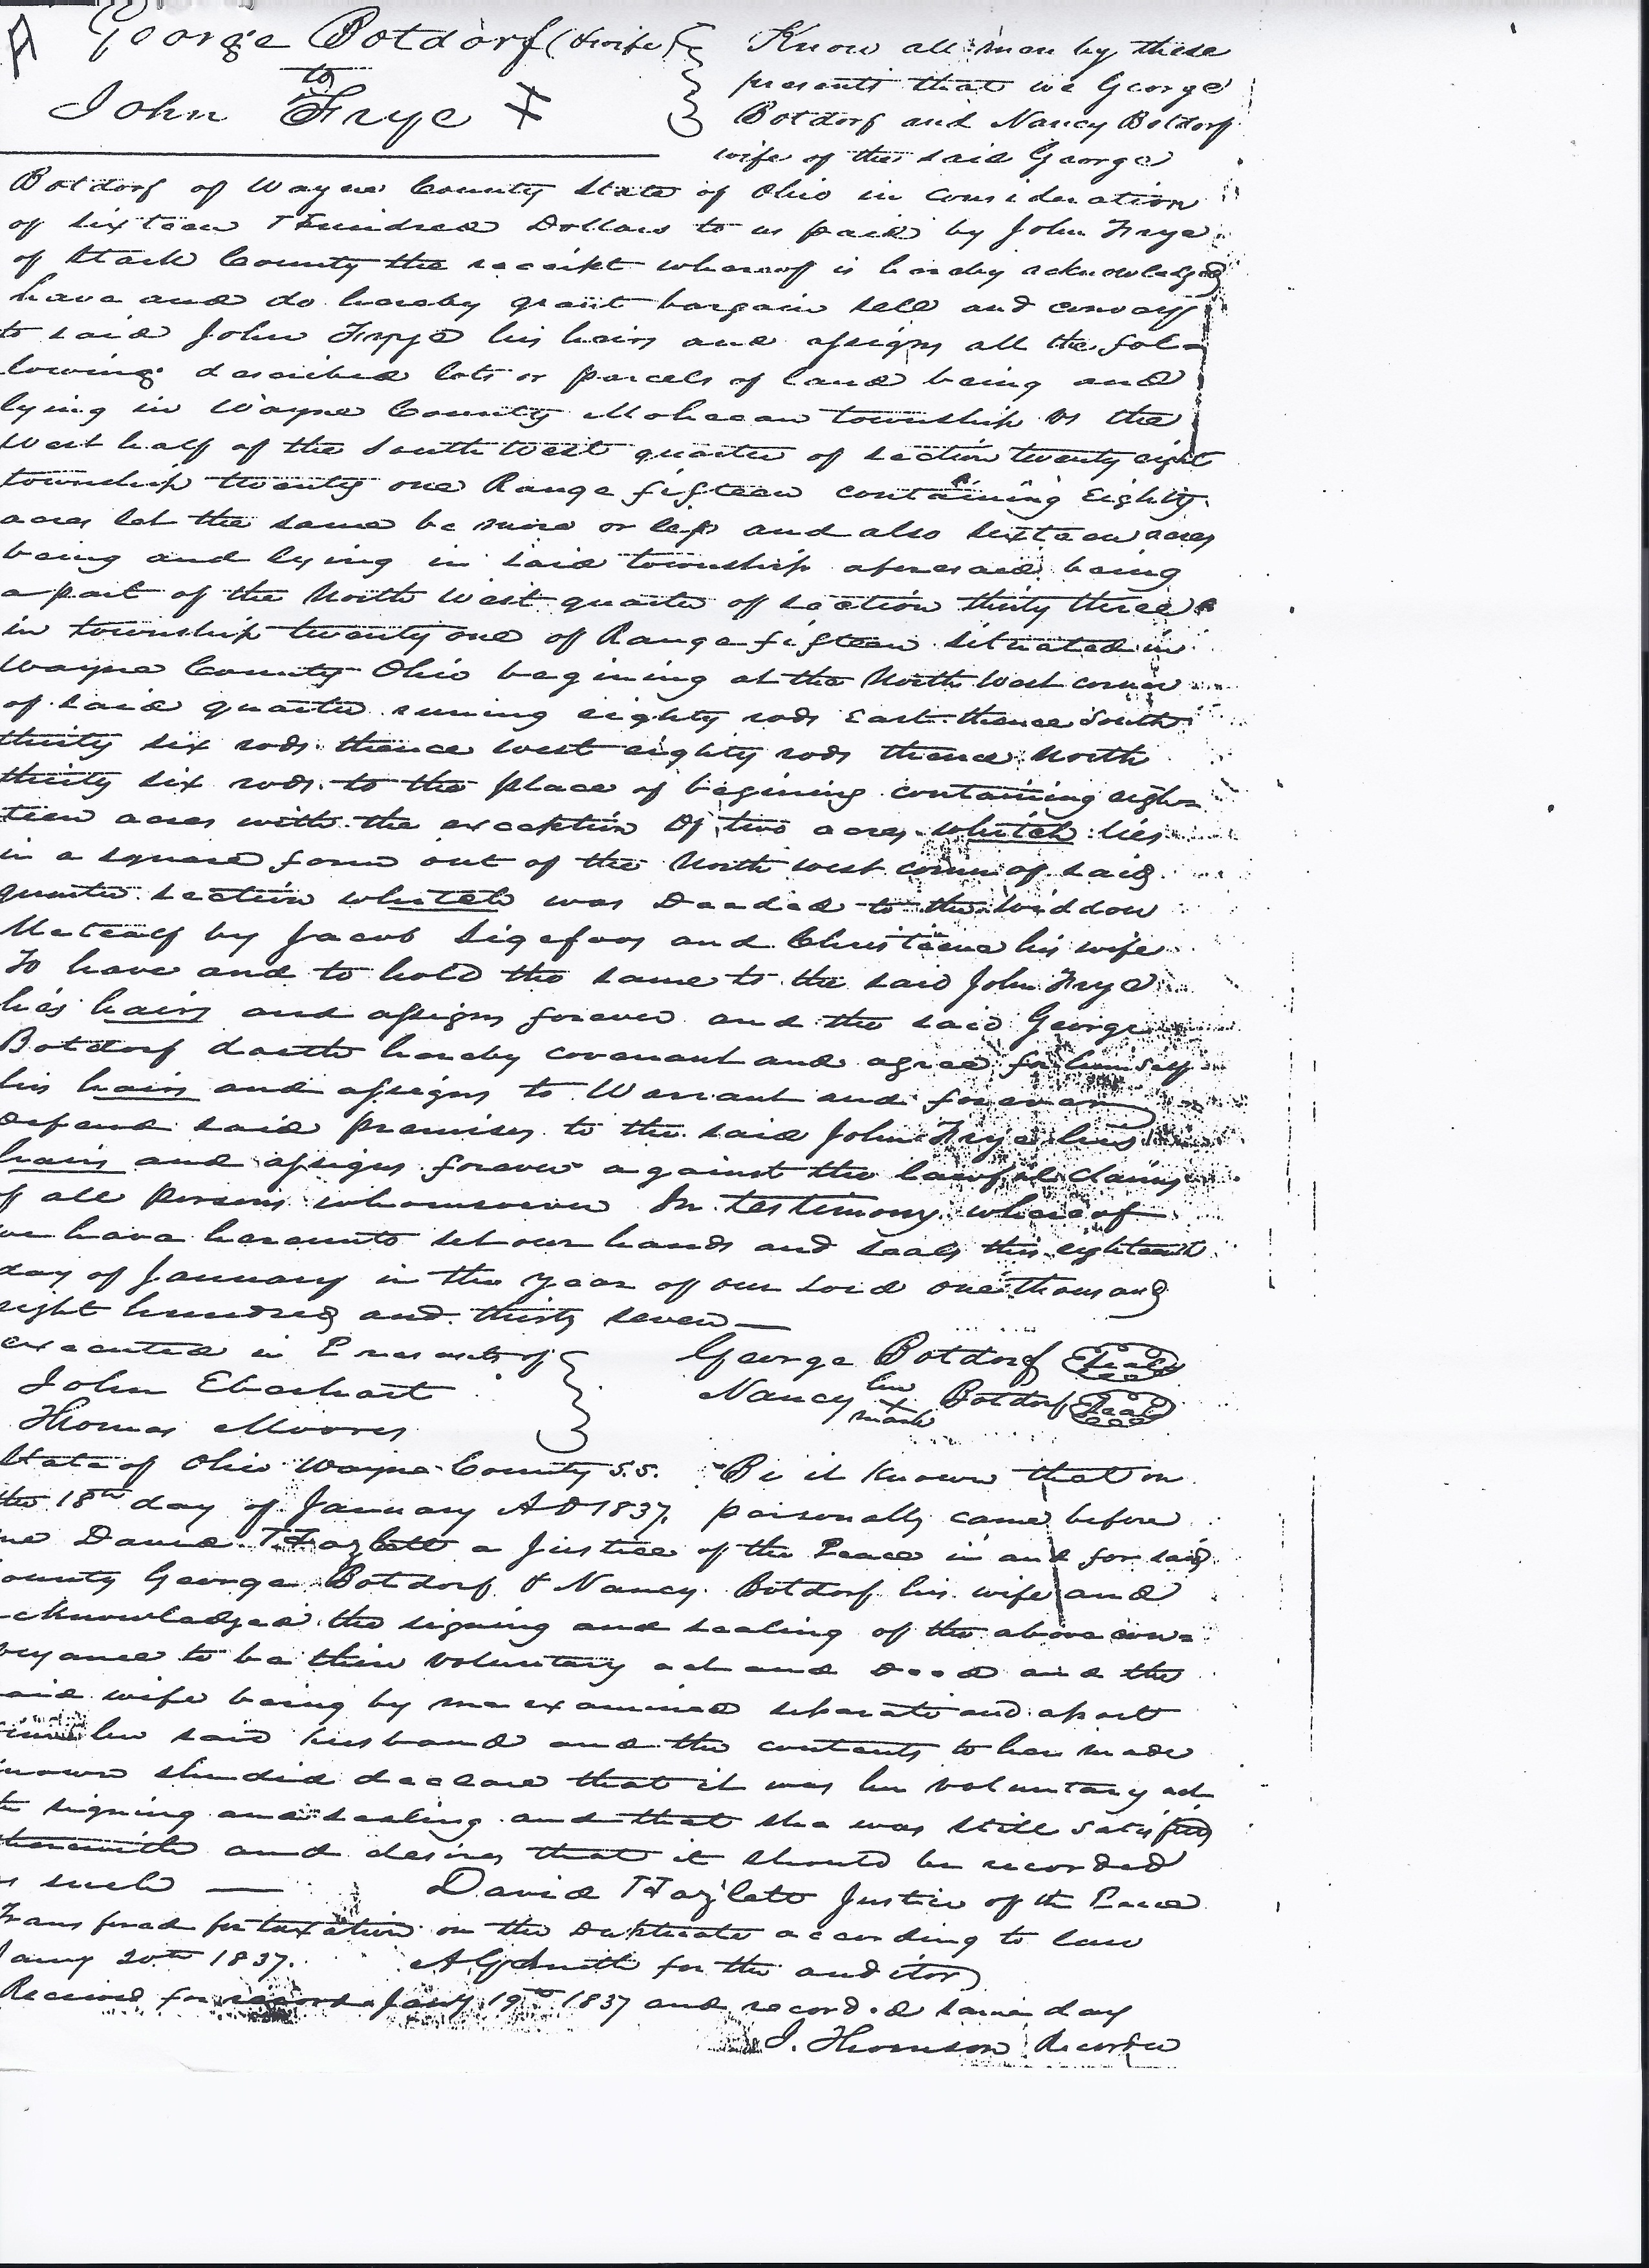 George Botdorf (& wife)
to
John Frye X
Know all men by these
presents that we George
Botdorf and Nancy Botdorf
wife of the said George
Botdorf of Wayne County State of Ohio in consideration
of sixteen Hundred Dollars to us paid by John Frye
of Stark County the receipt whereoff is hereby acknowledged
have and do hereby grant bargain sell and convay
to said John Frye his heirs and assigns all the fol=
lowing described lots or parcels of land being and
lying in Wayne County Mohecan township vs the
West half of the South West quarter of section twenty eight
township twenty one Range fifteen containing Eighty
acres let the same be more or less and also sixteen acres
being and lying in said township aforesaid being
a part of the North West quarter of section thirty three
in township twenty one of Range fifteen situated in
Wayne County Ohio begining at the North West corner
of said quarter runing eighty rods East thence South
thirty six rods thence west eighty rods thence North
thirty six rods to the place of begining containing eigh=
teen acres with the exception of two acres whitch lies
in a square form out of the North west corner of said
quarter section whitch was Deeded to the Widdow
Metcalf by Jacob Sigefoos and Christeena his wife
To have and to hold the same to the said John Frye
his hairs and assigns forever and the said George
Botdorf doeth hereby covenant and agree for himself
his hairs and assigns to Warrant and forever
defend said Premises to the said John Frye his
hairs and assigns forever against the lawful claims
of all persons whomsoever In testimony whereof
we have hereunto set our hands and seals this eighteenth
day of January in the year of our Lord one thousand
eight hundred and thirty seven —
executed in Presents of
John Eberhart
Thomas Moores
George Botdorf Seal
Nancy her X mark Botdorf Seal
State of Ohio Wayne County S.S. Be it Known that on
the 18th day of January AD 1837, personally came before
me David Hazlett a Justice of the Peace in and for said
County George Botdorf & Nancy Botdorf his wife and
acknowledged the signing and sealing of the above con=
veyance to be their voluntary act and Deed and the
said wife being by me examined separate and apart
from her said husband and the contents to her made
known she did declare that it was her voluntary act
signing and sealing and that she was still satisfied
therewith and desires that it should be recorded
as such — David Hazlett Justice of the Peace
Transfered for taxation on the Duplicate according to law
Jany 20th 1837. Smith for the auditor
Received for record Jany 19th 1837 and recorded same day
J. Thomson Recorder